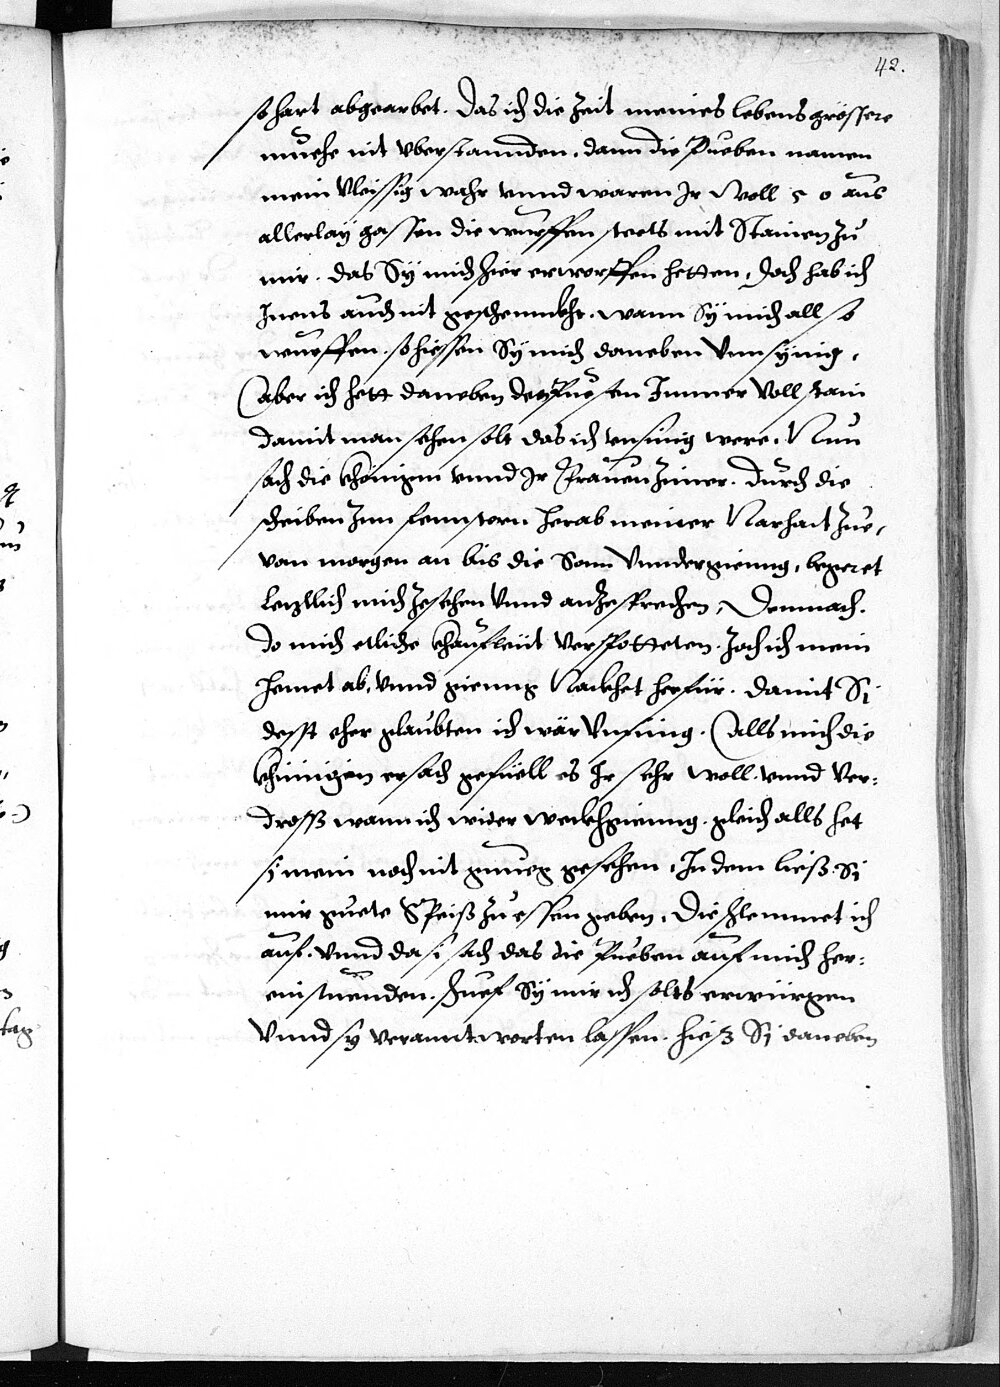 42.
so hart abgearbet. Das ich die Zeit meines lebens grössere
muehe nit vberstannden. dann die Pueben namen
mein vleissig wahr vnnd waren Ir woll 50 aus
allerlaÿ gassen die wurffen steets mit Stainen zu
mir. das Sÿ mich schier erworffen hetten, doch hab ich
Inens auch nit geschennckht. wann Sÿ mich all so
wurffen. so hiessen Sÿ mich daneben Vnnsÿnig.
Aber ich hett daneben den Puesen Immer voll stain
damit man sehen solt das ich vnsinig were. Nun
sach die khönigin vnnd Ir Frauenzimer. durch die
scheiben Zun fennstern herab meiner Narhait zue,
von morgen an bis die Sonn Vnndergienng, begeret
letzlich mich zesehen Vnnd anzesprechen, Demnach.
do mich etliche khaufleüt verspotteten. zoch ich mein
hemet ab, vnnd gienng Nackhet herfür. damit Si
desst eher glaubten ich wär Vnsinig. Alls mich die
khünigin ersach gefüell es Ir sehr woll. vnnd ver-
dross wann ich wider weckhgienng. gleich alls het
si mein noch nit gnueg gesehen, In dem liess Si
mir guete Speiß zu essen geben, Die schlemmet ich
auf. vnnd da si sach das die Pueben auf mich her-
ein stuenden. Ruef Sÿ mir ich solts erwürgen
Vnnd sÿ verantworten lassen. hieß Si daneben
tag